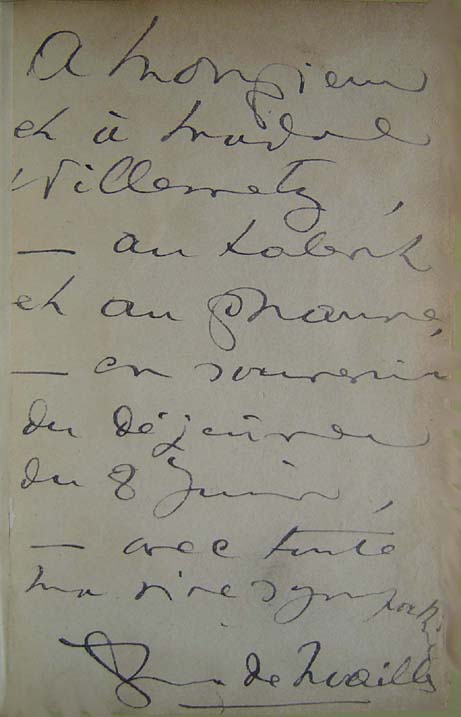 A Monsieur
et à Madame
Willemetz,
— au talent
et au charme,
— en souvenir
du déjeuner
du 8 Juin,
— avec toute
ma vive sympathie
de Noailles